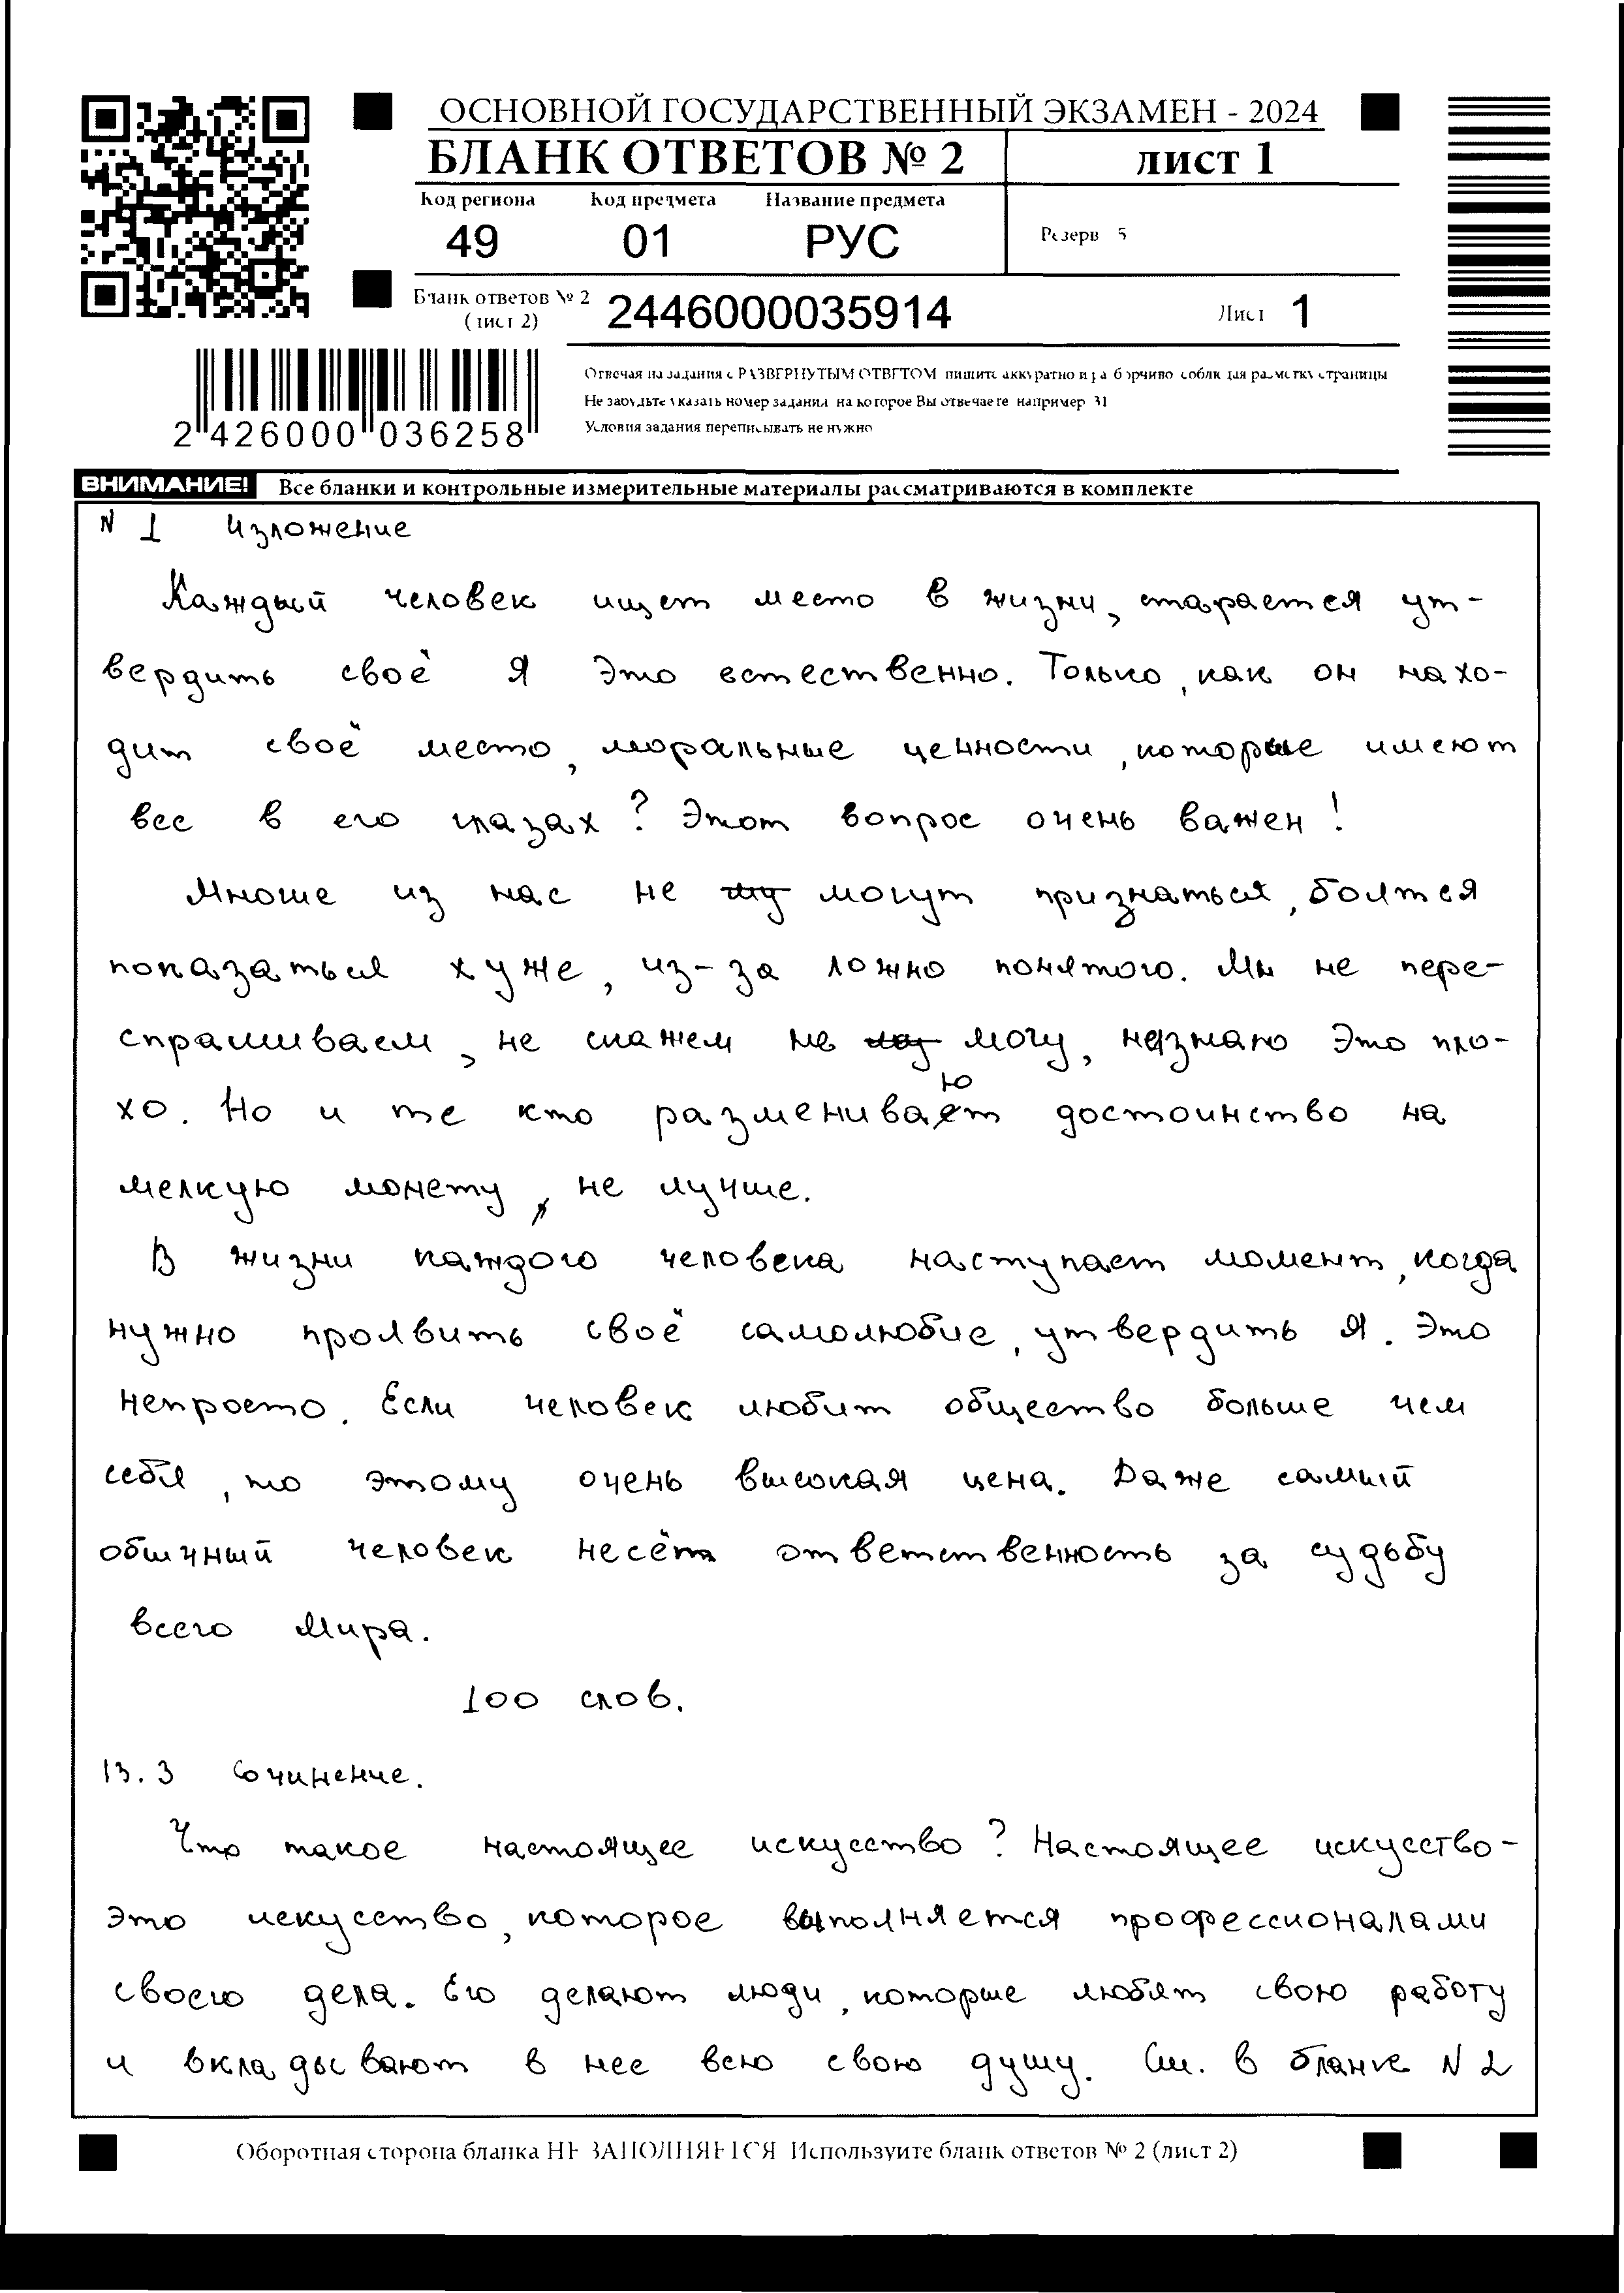 ОСНОВНОЙ ГОСУДАРСТВЕННЫЙ ЭКЗАМЕН - 2024
БЛАНК ОТВЕТОВ № 2 лист 1
Код региона Код предмета Название предмета
49 01 РУС Резерв 5
Бланк ответов № 2 (лист 2) 2446000035914 Лист 1
2 426000 036258
Отвечая на задания с РАЗВЕРНУТЫМ ОТВЕТОМ пишите аккуратно и разборчиво соблюдая разметку страницы
Не забудьте указать номер задания на которое Вы отвечаете например 31
Условия задания переписывать не нужно
ВНИМАНИЕ! Все бланки и контрольные измерительные материалы рассматриваются в комплекте
N 1 Изложение
Каждый человек ищет место в жизни, старается ут-
вердить своё Я Это естественно. Только, как он нахо-
дит своё место, моральные ценности, которые имеют
вес в его глазах? Этот вопрос очень важен!
Многие из нас не могут признаться, боятся
показаться хуже, из-за ложно понятого. Мы не пере-
спрашиваем, не скажем не могу, незнаю Это пло-
хо. Но и те кто разменивают достоинство на
мелкую монету, не лучше.
В жизни каждого человека наступает момент, когда
нужно проявить своё самолюбие, утвердить Я. Это
непросто. Если человек любит общество больше чем
себя, то этому очень высокая цена. Даже самый
обычный человек несёт ответственность за судьбу
всего Мира.
100 слов.
13.3 Сочинение.
Что такое настоящее искусство? Настоящее искусство-
это искусство, которое выполняется профессионалами
своего дела. Его делают люди, которые любят свою работу
и вкладывают в нее всю свою душу. См. в бланке N 2
Оборотная сторона бланка НЕ ЗАПОЛНЯЕТСЯ Используйте бланк ответов № 2 (лист 2)